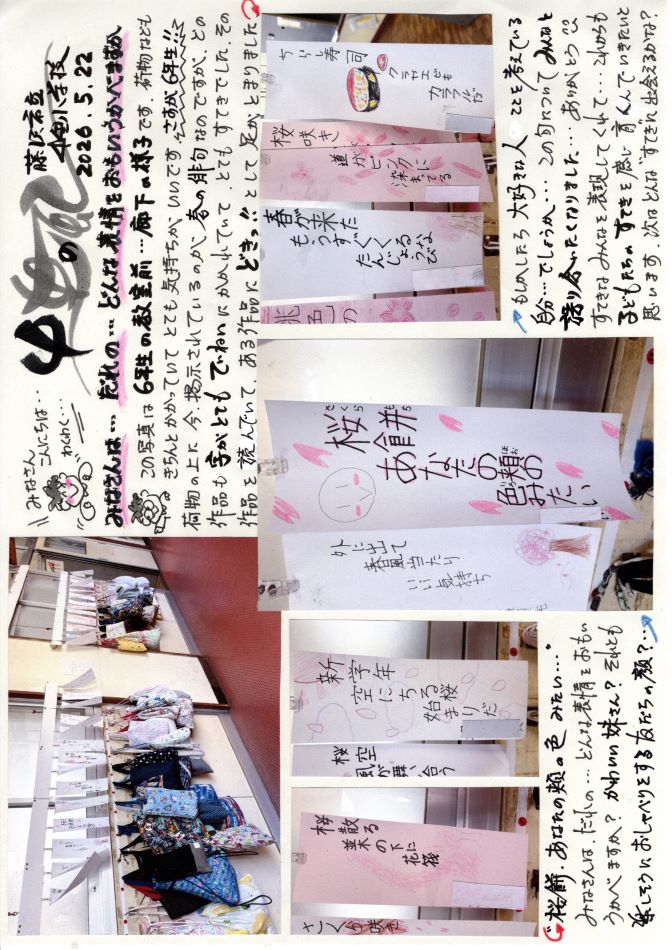 みなさん
こんにちは…
わくわく…
の
藤沢市立
小学校
2026.5.22
みなさんは…だれの…どんな表情をおもいうかべますか
この写真は 6年生の教室前…廊下の様子です。荷物なども
きちんとかかっていて とても気持ちがいいです。さすが6年生!!
荷物の上に 今、掲示されているのが、春の俳句なのですが、どの
作品も 字がとても でいねいにかかれていて、とても すてきでした。その
作品を 読んでいて、ある作品に どきっ!! として 足がとまりました
ちらし寿司
クラサエビも
カラフルだ
桜咲き
道がピンクに
染まってる
春が来た
もうすぐくるな
たんじょうび
桃色の
さくらもち
桜餅
あなたの頬の
ほお
色みたい
外に出て
春風当たり
いい気持ち
新学年
空にちる桜
始まりだ
桜空
風が舞い合う
桜散る
並木の下に
花筏
さくら咲き
"桜餅 あなたの頬の色 みたい…"
みなさんは、だれの…どんな表情をおもい
うかべますか? かわいい妹さん? それとも
楽しそうにおしゃべりをする友だちの顔?…
もしかしたら 大好きな人 ことを考えている
自分…でしょうか… この句について みんなと
語り合いたくなりました… ありがとう
すてきなみんなを表現してくれて… これからも
子どもたちの すてきを感じ 育んでいきたいと
思います 次は どんな"すてき"に出会えるかな?